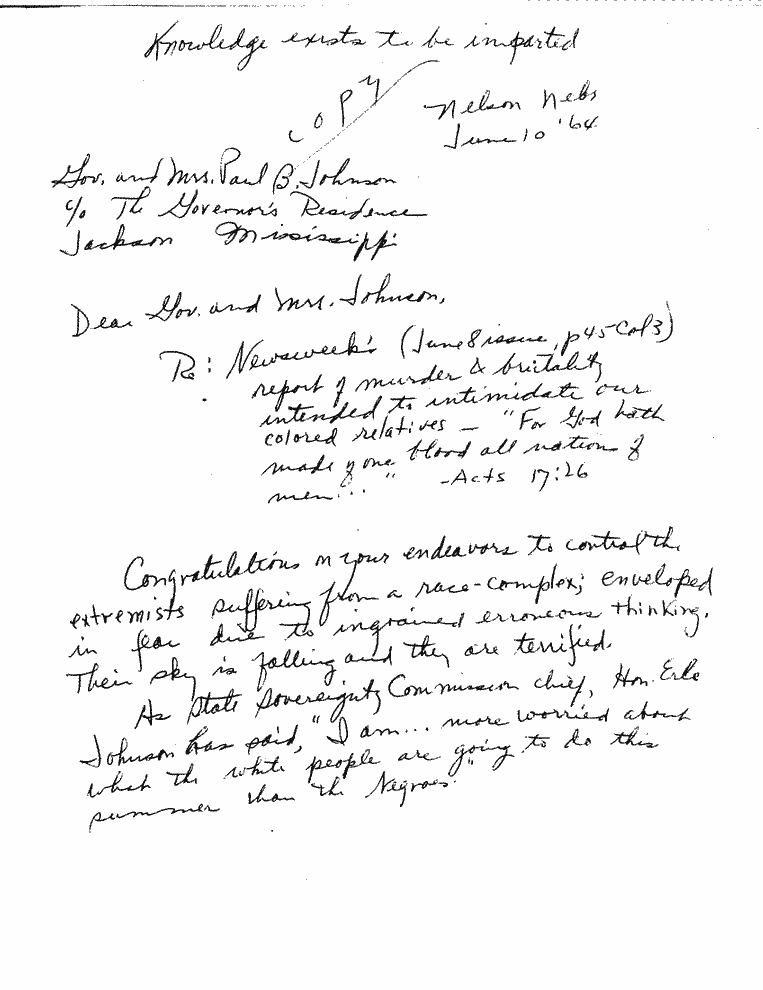 Knowledge exists to be imparted
COPY
Nelson Nebs
June 10 '64
Gov. and Mrs. Paul B. Johnson
c/o The Governor's Residence
Jackson Mississippi
Dear Gov. and Mrs. Johnson,
Re: Newsweek's (June 8 issue, p45 Col 3)
report of murder & brutality
intended to intimidate our
colored relatives — "For God hath
made of one blood all nations of
men..." -Acts 17:26
Congratulations on your endeavors to control the
extremists suffering from a race-complex; enveloped
in fear due to ingrained erroneous thinking.
Their sky is falling and they are terrified.
As State Sovereignty Commission chief, Hon. Erle
Johnson has said, "I am... more worried about
what the white people are going to do this
summer than the Negroes."